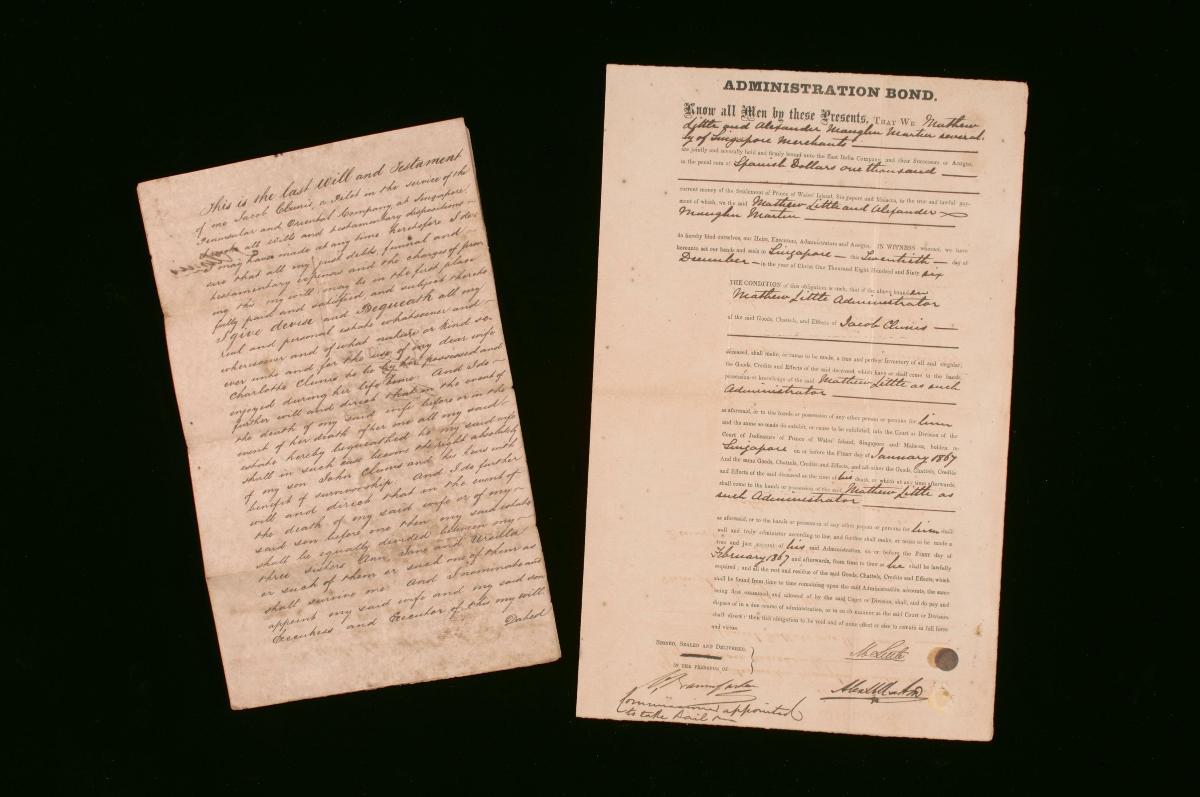 This is the last Will and Testament
of me Jacob Clunis, a Pilot in the service of the
Peninsular and Oriental Company at Singapore.
all wills and testamentary dispositions
I may have made at any time heretofore I de-
sire that all my just debts, funeral and
testamentary expenses and the charges of prov
ing this my will may be in the first place
fully paid and satisfied and subject thereto
I give devise and Bequeath all my
real and personal estate whatsoever and
wheresoever and of what nature or kind so
ever unto and for the use of my dear wife
Charlotte Clunis to be by her possessed and
enjoyed during her life time. And I do
further will and direct that in the event of
the death of my said wife before or in the
event of her death after me all my said
estate hereby bequeathed to my said wife
shall in such case become the right absolutely
of my son John Clunis and his heirs with
benefit of survivorship. And I do further
will and direct that in the event of
the death of my said wife or of my
said son before me then my said estate
shall be equally divided between my
three sisters Ann Jane and Ursilla
or such of them or such one of them as
shall survive me. And I nominate and
appoint my said wife and my said son
Executress and Executor of this my will
Dated
ADMINISTRATION BOND.
Know all Men by these Presents, THAT WE Mathew
Little and Alexander Manghin Martin several-
ly of Singapore Merchants
are jointly and severally held and firmly bound unto the East India Company and their Successors or Assigns,
in the penal sum of Spanish Dollars one thousand
current money of the Settlement of Prince of Wales' Island, Singapore and Malacca, to the true and lawful pay-
ment of which, we the said Matthew Little and Alexander
Manghin Martin
do hereby bind ourselves, our Heirs, Executors, Administrators and Assigns. IN WITNESS whereof, we have
hereunto set our hands and seals in Singapore this Twentieth day of
December in the year of Christ One Thousand Eight Hundred and Sixty six
THE CONDITION of this obligation is such, that if the above bounden
Mathew Little Administrator
of the said Goods, Chattels, and Effects of Jacob Clunis
deceased, shall make, or cause to be made, a true and perfect Inventory of all and singular;
the Goods, Credits and Effects of the said deceased which have or shall come to the hands
possession or knowledge of the said Mathew Little as such
Administrator
as aforesaid, or to the hands or possession of any other person or persons for him
and the same so made do exhibit, or cause to be exhibited, into the Court or Division of the
Court of Judicature of Prince of Wales' Island, Singapore and Malacca, holden in
Singapore on or before the FIRST day of January 1867
And the same Goods, Chattels, Credits and Effects, and all other the Goods, Chattels, Credits
and Effects of the said deceased at the time of his death, or which at any time afterwards,
shall come to the hands or possession of the said Mathew Little as
such Administrator
as aforesaid, or to the hands or possession of any other person or persons for him shall
well and truly administer according to law, and further shall make, or cause to be made a
true and just account of his said Administration on or before the FIRST day of
February 1867 and afterwards, from time to time as he shall be lawfully
required; and all the rest and residue of the said Goods, Chattels, Credits and Effects, which
shall be found from time to time remaining upon the said Administration accounts, the same
being first examined, and allowed of by the said Court or Division, shall, and do pay and
dispose of in a due course of administration, or in such manner as the said Court or Division
shall direct: then this obligation to be void and of none effect or else to remain in full force
and virtue.
SIGNED, SEALED AND DELIVERED,
IN THE PRESENCE OF
M Little
Commissioner appointed
to take Bail